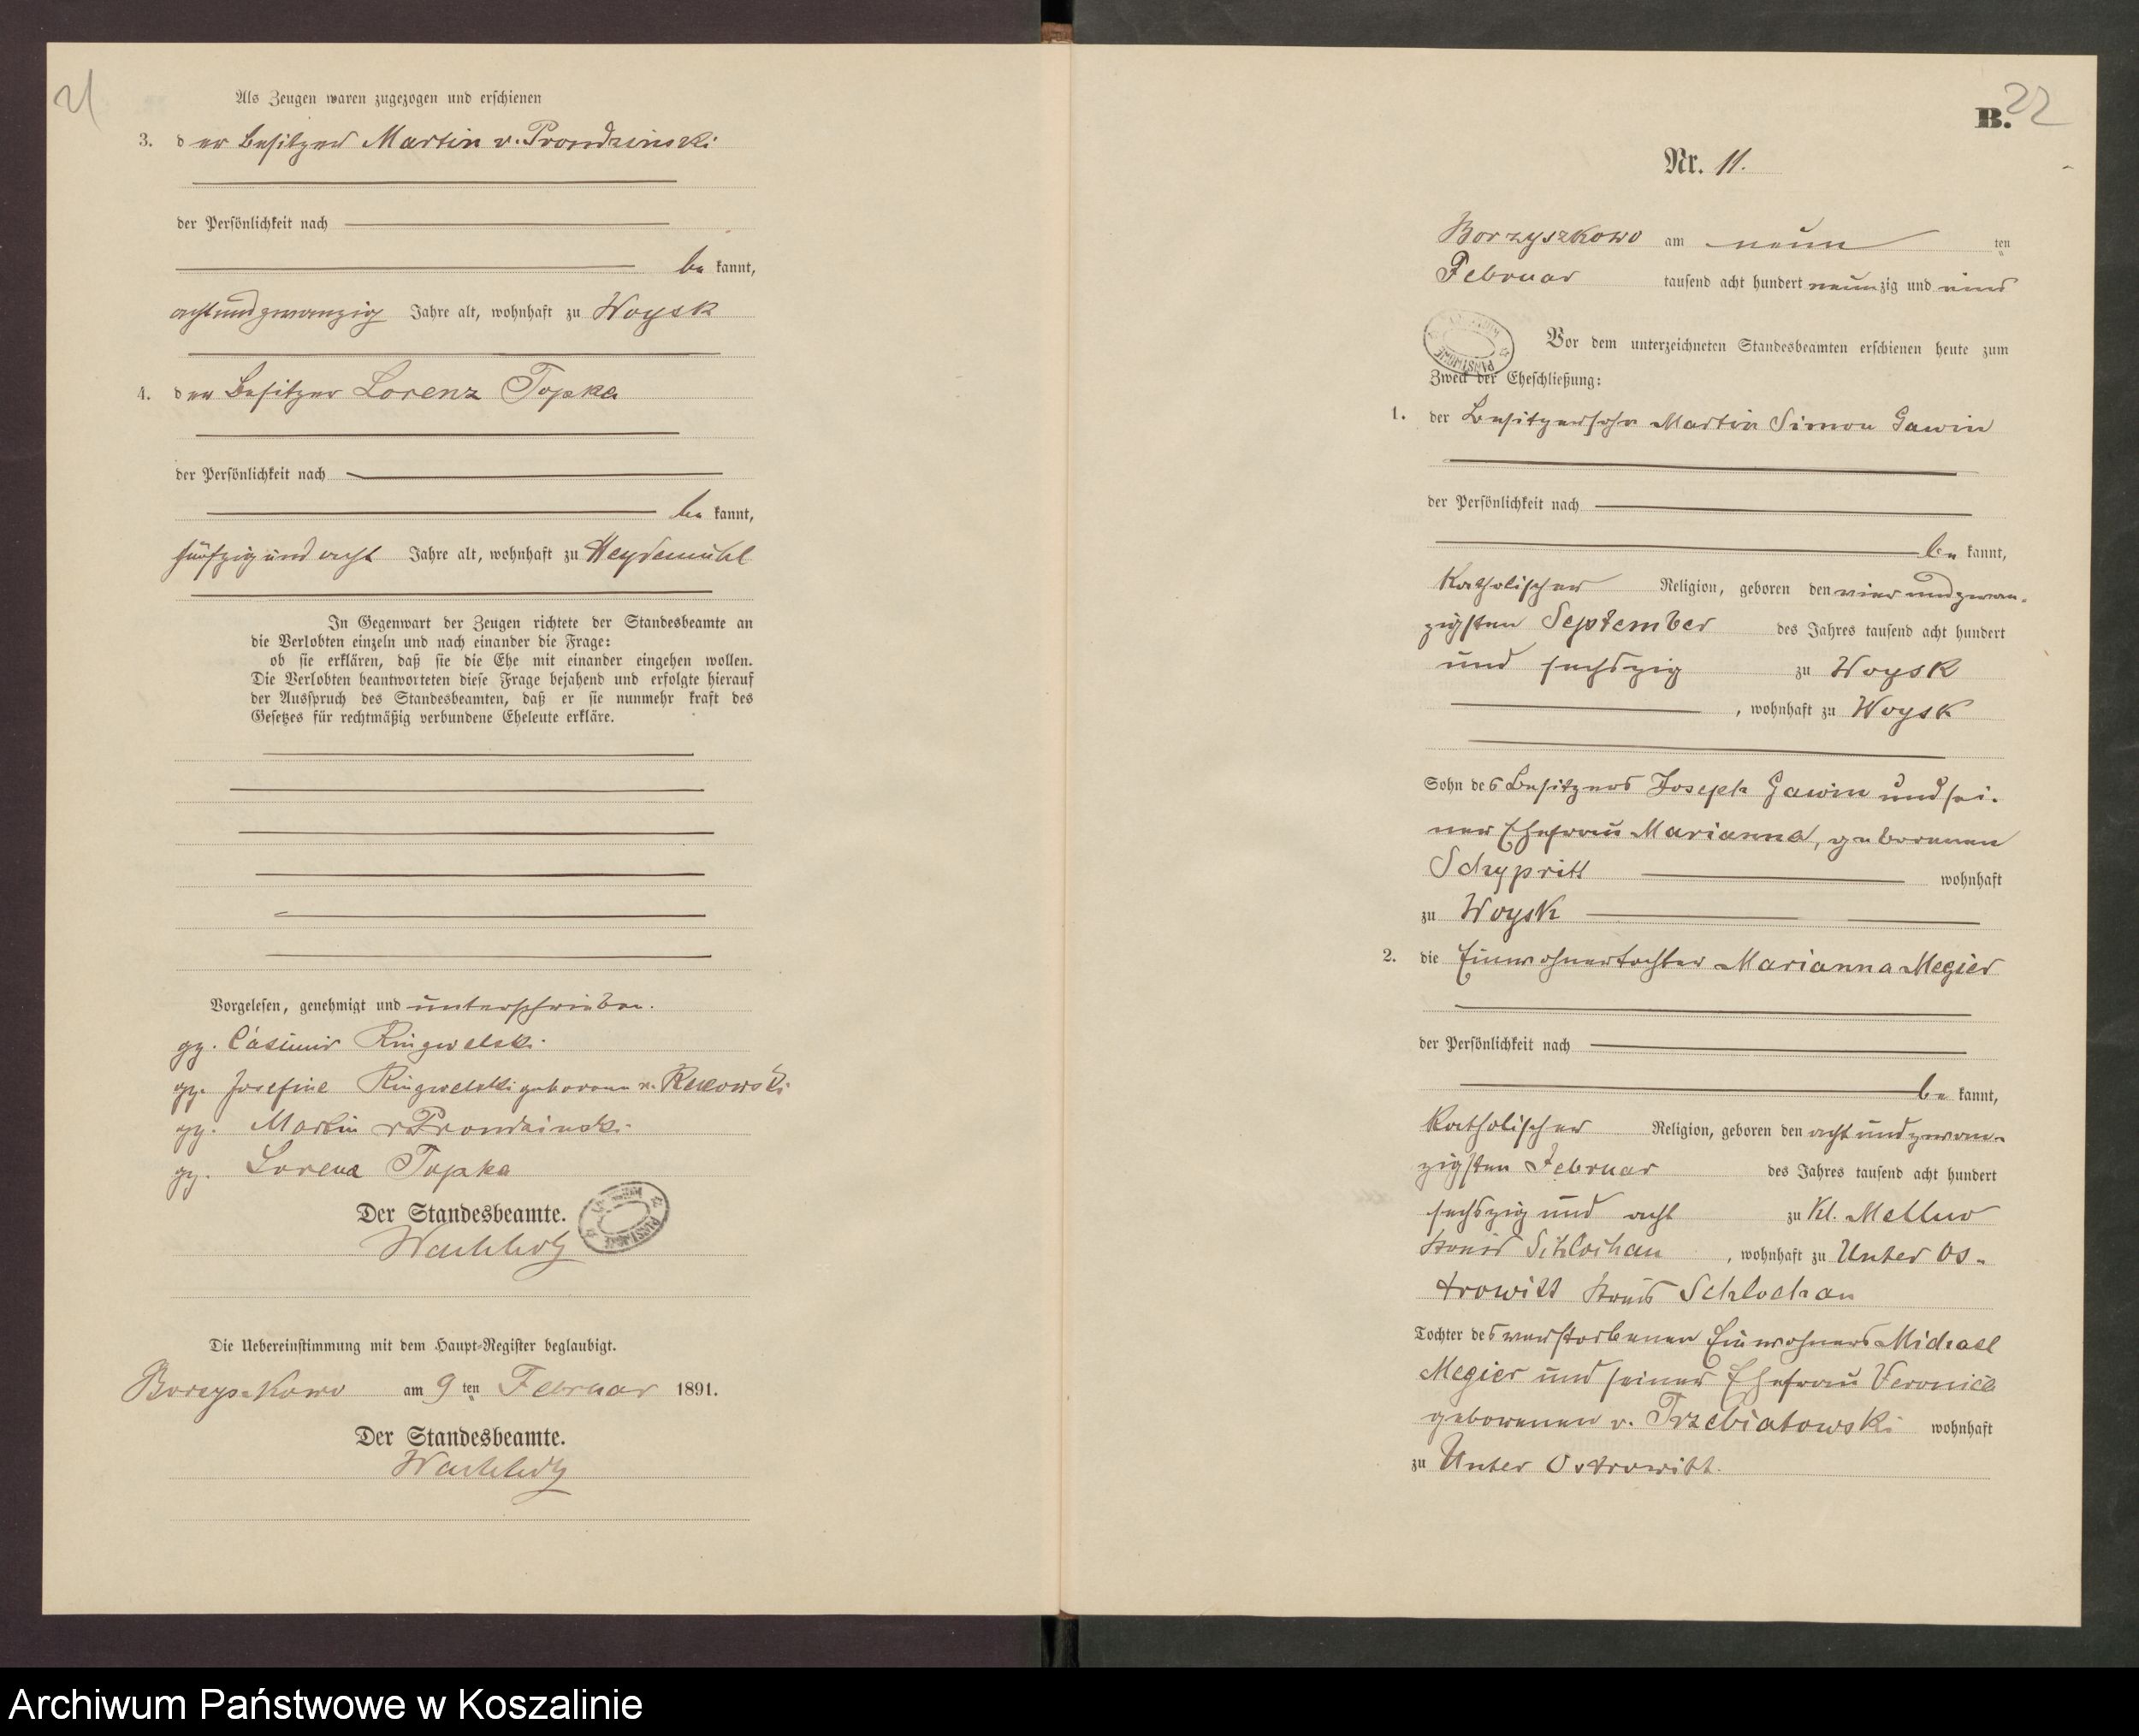 21
Als Zeugen waren zugezogen und erschienen
3. der Besitzer Martin v. Prondzinski
der Persönlichkeit nach
be kannt,
achtundzwanzig Jahre alt, wohnhaft zu Woysk
4. der Besitzer Lorenz Topka
der Persönlichkeit nach
be kannt,
fünfzig und acht Jahre alt, wohnhaft zu Heydemühl
In Gegenwart der Zeugen richtete der Standesbeamte an
die Verlobten einzeln und nach einander die Frage:
ob sie erklären, daß sie die Ehe mit einander eingehen wollen.
Die Verlobten beantworteten diese Frage bejahend und erfolgte hierauf
der Ausspruch des Standesbeamten, daß er sie nunmehr kraft des
Gesetzes für rechtmäßig verbundene Eheleute erkläre.
Vorgelesen, genehmigt und unterschrieben.
gz. Casimir Ringwelski
gz. Josefine Ringwelski geborene v. Rekowski
gz. Martin v Prondzinski
gz. Lorenz Topka
Der Standesbeamte.
Die Uebereinstimmung mit dem Haupt-Register beglaubigt.
Borzyszkowo am 9 ten Februar 1891.
Der Standesbeamte.
B. 22
Nr. 11.
Borzyszkowo am neun ten
Februar tausend acht hundert neunzig und eins
Vor dem unterzeichneten Standesbeamten erschienen heute zum
Zweck der Eheschließung:
1. der Besitzersohn Martin Simon Gawin
der Persönlichkeit nach
be kannt,
Katholischer Religion, geboren den vierundzwan-
zigsten September des Jahres tausend acht hundert
und sechszig zu Woysk
, wohnhaft zu Woysk
Sohn des Besitzers Joseph Gawin und sei-
ner Ehefrau Marianna, geborenen
Schypritt wohnhaft
zu Woysk
2. die Einwohnertochter Marianna Megier
der Persönlichkeit nach
be kannt,
Katholischer Religion, geboren den achtundzwan-
zigsten Februar des Jahres tausend acht hundert
sechszig und acht zu Kl. Mellno
Kreis Schlochau , wohnhaft zu Unter Os-
trowitt Kreis Schlochau
Tochter des verstorbenen Einwohners Michael
Megier und seiner Ehefrau Veronica
geborenen v. Trzebiatowski wohnhaft
zu Unter Ostrowitt.
Archiwum Państwowe w Koszalinie